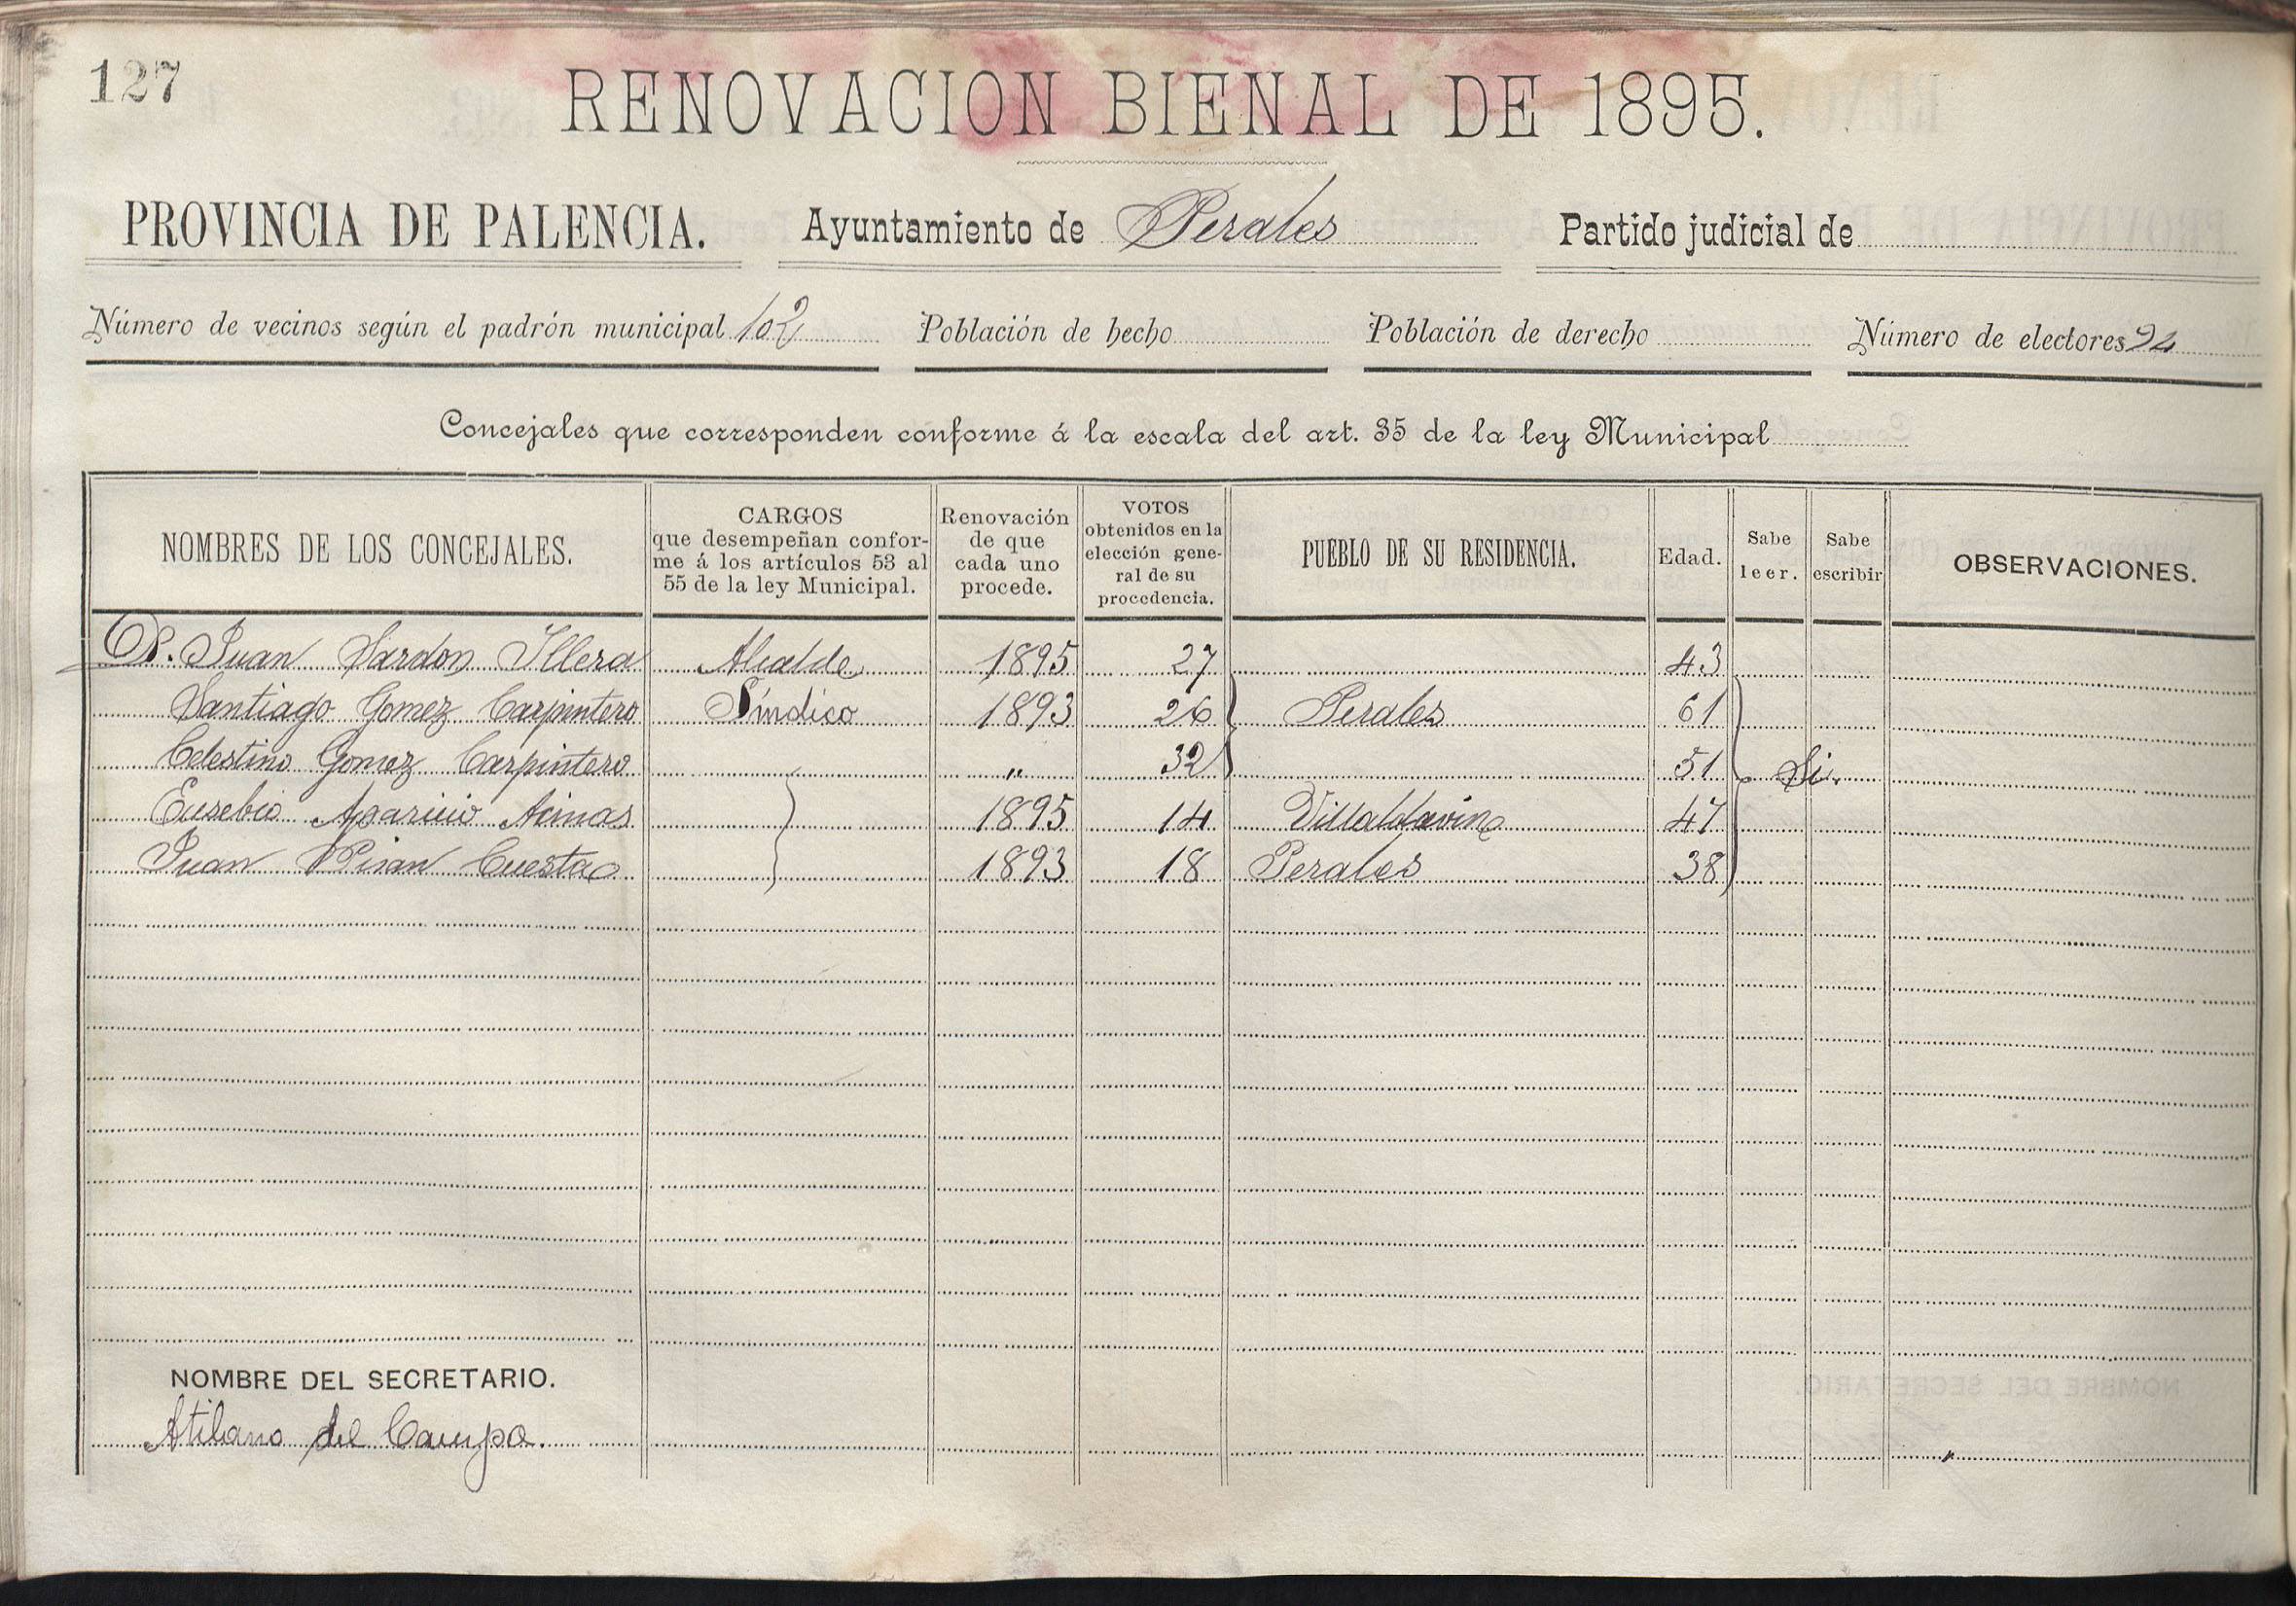 127
RENOVACION BIENAL DE 1895.
PROVINCIA DE PALENCIA. Ayuntamiento de Perales Partido judicial de
Número de vecinos según el padrón municipal 102 Población de hecho Población de derecho Número de electores 94
Concejales que corresponden conforme á la escala del art. 35 de la ley Municipal
NOMBRES DE LOS CONCEJALES. CARGOS que desempeñan confor-me á los artículos 53 al 55 de la ley Municipal. Renovación de que cada uno procede. VOTOS obtenidos en la elección gene-ral de su procedencia. PUEBLO DE SU RESIDENCIA. Edad. Sabe leer. Sabe escribir OBSERVACIONES.
D. Juan Sardon Illera Alcalde 1895 27 43
Santiago Gomez Carpintero Síndico 1893 26 Perales 61
Celestino Gomez Carpintero " 32 51 Si.
Eusebio Aparicio Acinas 1895 14 Villaldavin 47
Juan Cuesta 1893 18 Perales 38
NOMBRE DEL SECRETARIO.
Atilano del Campo.